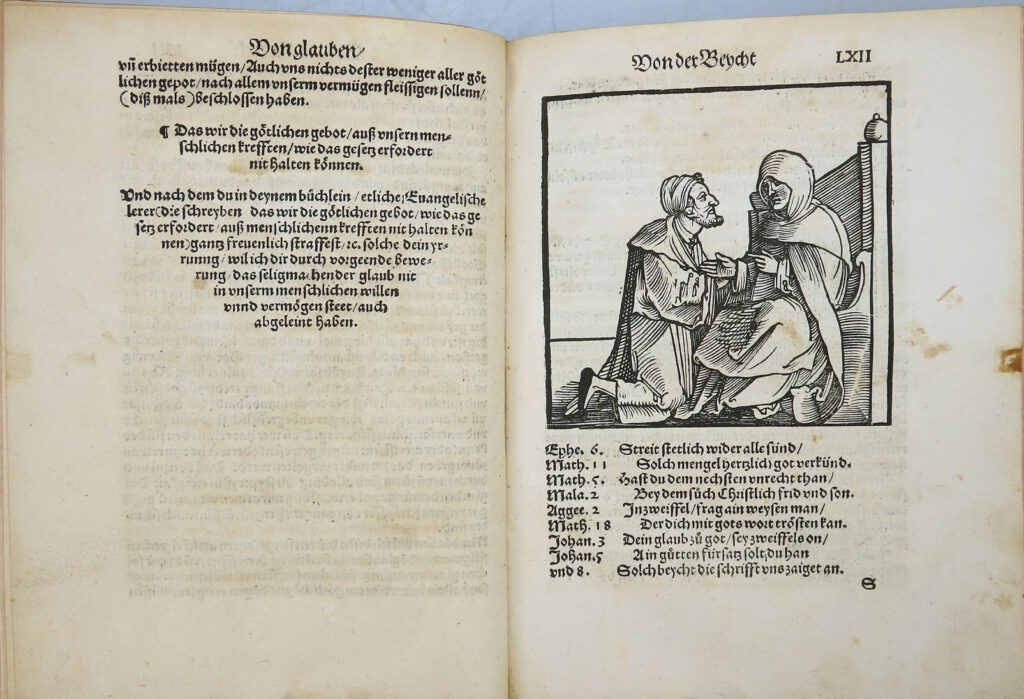 Von glauben/
vñ erbietten mügen/Auch vns nichts dester weniger aller göt
lichen gepot/nach allem vnserm vermügen fleissigen sollenn/
(diß mals) beschlossen haben.
¶ Das wir die götlichen gebot/auß vnsern men-
schlichen krefften/wie das gesetz erfordert
nit halten können.
Vnd nach dem du in deynem büchlein/etliche Euangelische
lerer(die schreyben das wir die götlichen gebot/wie das ge
setz erfordert/auß menschlichenn krefften nit halten kön
nen)gantz freuenlich straffest/ꝛc. solche dein yr-
runng/wil ich dir durch vorgeende bewe-
rung/das seligmachender glaub nit
in vnserm menschlichen willen
vnnd vermögen steet/auch
abgeleint haben.
Von der Beycht LXII
Ephe. 6. Streit stetlich wider alle sünd/
Math. 11 Solch mengel hertzlich got verkünd.
Math. 5. Hast du dem nechsten vnrecht than/
Mala. 2 Bey dem sůch Christlich frid vnd son.
Aggee. 2 In zweiffel/frag ain weysen man/
Math. 18 Der dich mit gots wort trösten kan.
Johan. 3 Dein glaub zů got/sey zweiffels on/
Johan. 5 Ain gůtten fürsatz solt du han
vnd 8. Solch beycht die schrifft vns zaiget an.
S